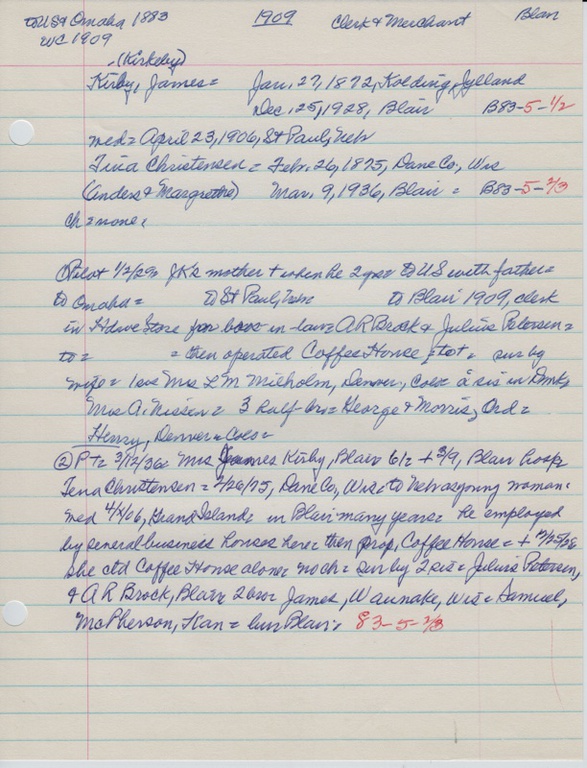 to US & Omaha 1883 1909 Clerk & Merchant Blair
WC 1909
(Kirkeby)
Kirby, James = Jan. 27, 1872, Kolding, Jylland
Dec. 25, 1928, Blair B83-5-1/2
med = April 23, 1906, St Paul, Neb
Tina Christensen = Febr. 26, 1875, Dane Co, Wis
(Anders & Margrethe) Mar. 9, 1936, Blair = B83-5-2/3
ch = none.
① Pilot 1/2/29 = JK's mother + when he 2 yrs = to US with father =
to Omaha = to St Paul, Neb to Blair 1909, clerk
in Hdwe Store for bros in-law = A R Brock & Julius Petersen =
to = = then operated Coffee House = sur by
wife = 1 sis Mrs L M Milholm, Denver, Colo = a sis in Dmk,
Mrs A. Nissen = 3 half-bro = George & Morris, Ord =
Henry, Denver, Colo =
② PT = 3/12/36 = Mrs James Kirby, Blair 61 = + 3/9, Blair Hosp =
Tena Christensen = 2/26/75, Dane Co, Wis = to Neb as young woman =
med 4/ /06, Grand Island = in Blair many years = he employed
by several business houses here = then prop, Coffee House = +
she ctd Coffee House alone = no ch = sur by 2 sis = Julius Petersen,
& A R Brock, Blair 2 bro = James, Waunake, Wis = Samuel,
McPherson, Kan = bur Blair = 83-5-2/3